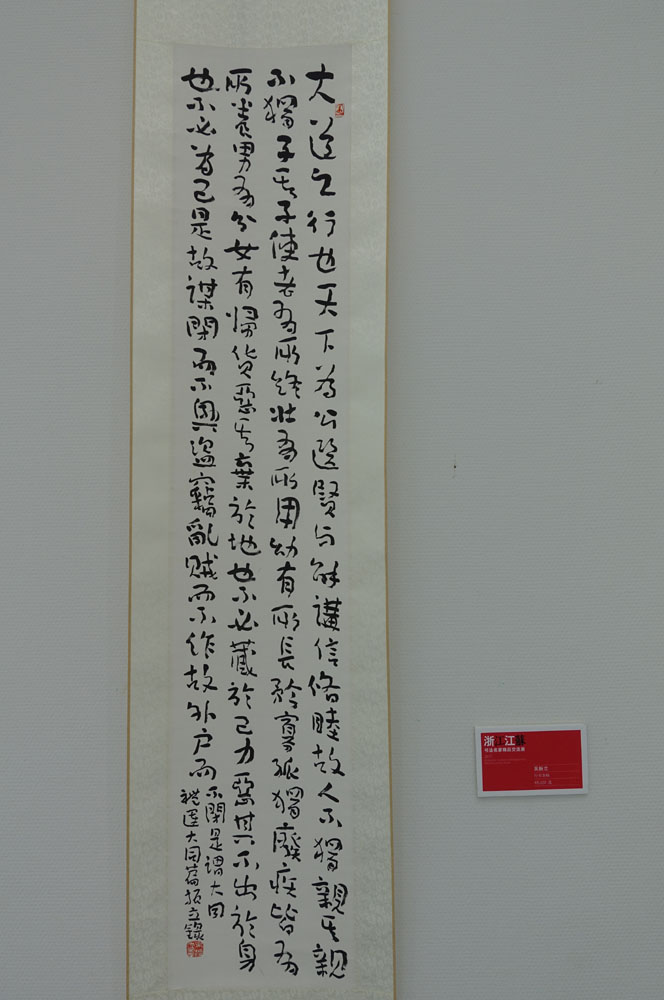 大道之行也天下為公選賢与能講信脩睦故人不獨親其親
不獨子其子使老有所終壯有所用幼有所長矜寡孤獨廢疾皆有
所養男有分女有歸貨惡其棄於地也不必藏於己力惡其不出於身
也不必為己是故謀閉而不興盜竊亂賊而不作故外戶而
不閉是謂大同
禮運大同篇振立錄
浙江江蘇